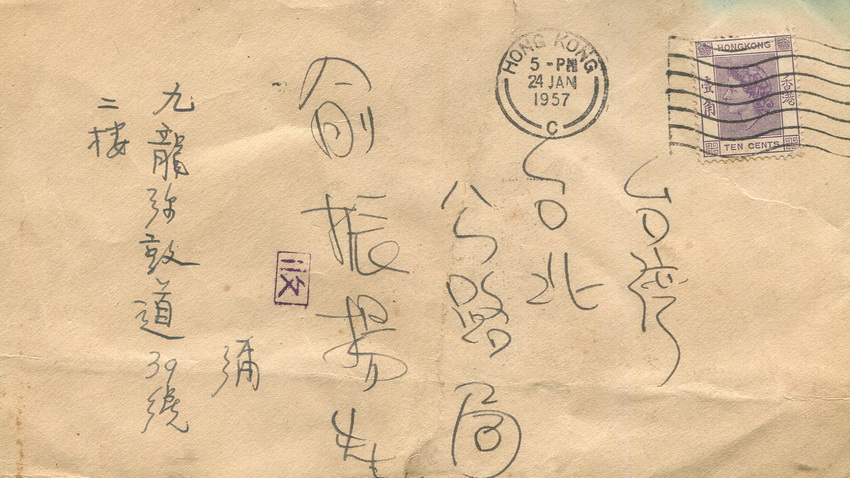 HONGKONG
香港
壹角
TEN CENTS
HONG KONG
5 - PM
24 JAN
1957
C
台灣
台北
公路局
俞振揚先
彌
九龍弥敦道39號
二樓